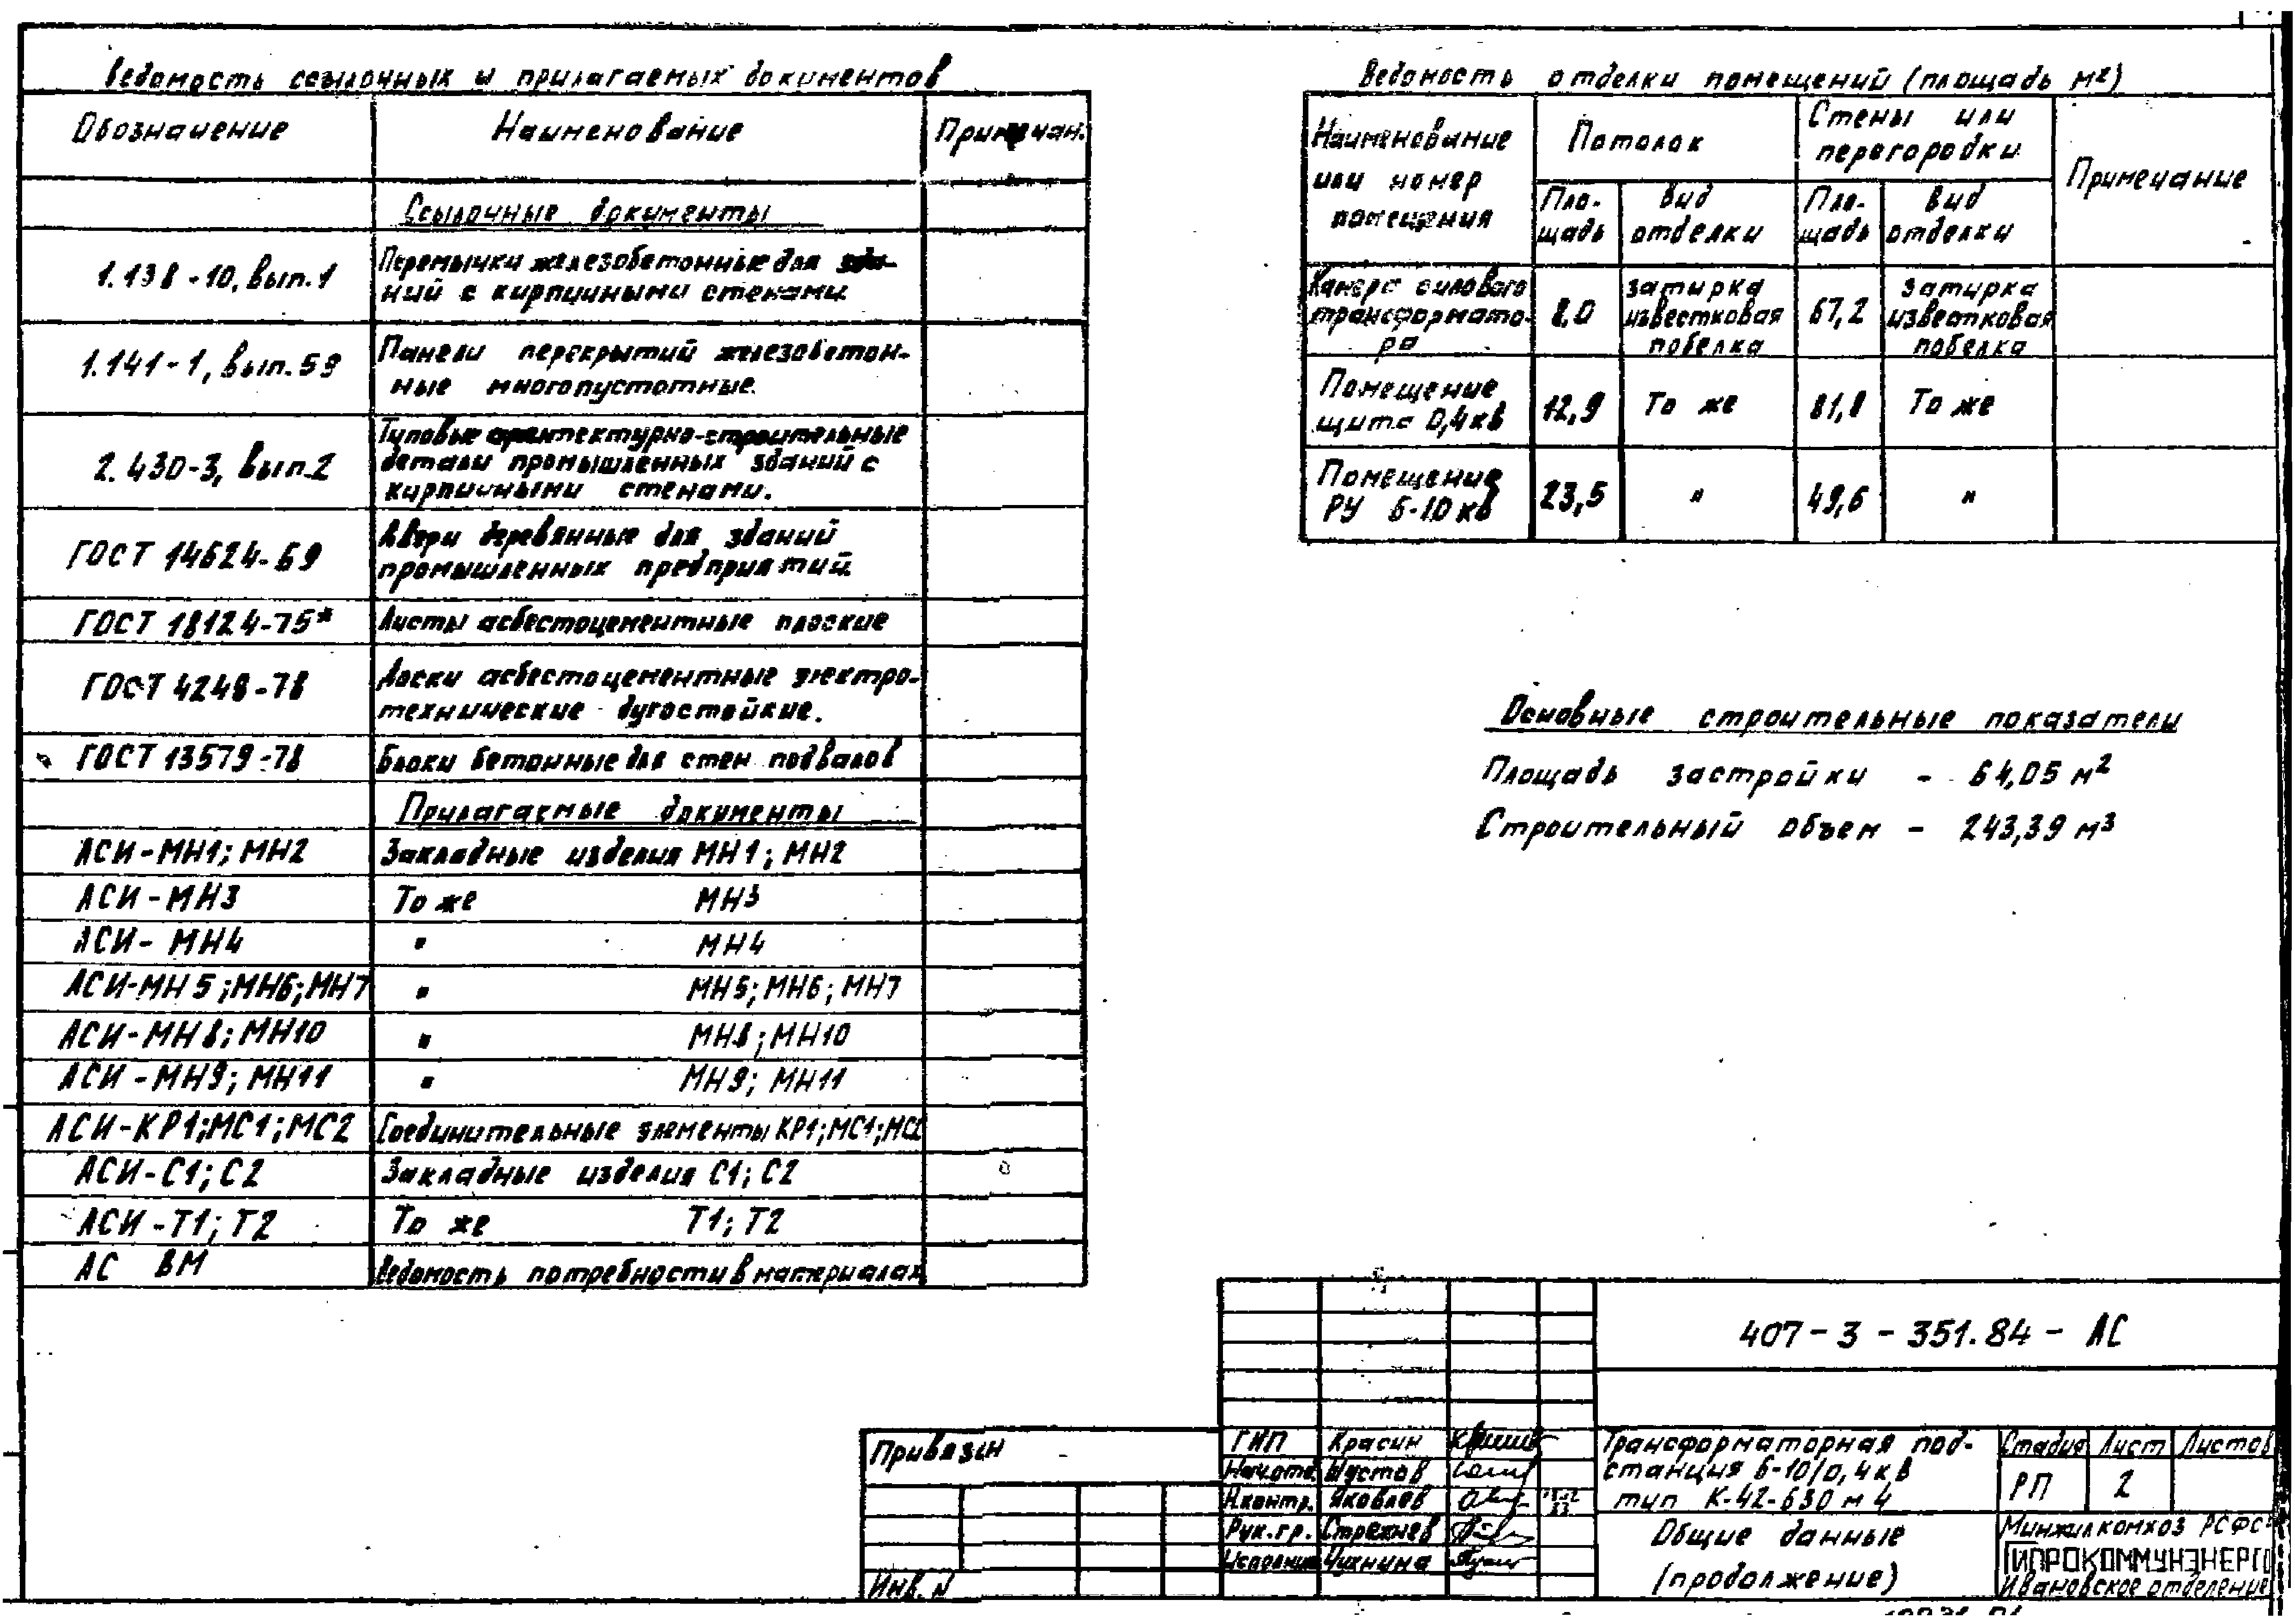 Ведомость ссылочных и прилагаемых документов
Обозначение Наименование Примечан.
Ссылочные документы
1.138-10, вып.1 Перемычки железобетонные для зда-
ний с кирпичными стенами
1.141-1, вып.59 Панели перекрытий железобетон-
ные многопустотные.
2.430-3, вып.2 Типовые архитектурно-строительные
детали промышленных зданий с
кирпичными стенами.
ГОСТ 14624-69 Двери деревянные для зданий
промышленных предприятий.
ГОСТ 18124-75* Листы асбестоцементные плоские
ГОСТ 4248-78 Доски асбестоцементные электро-
технические дугостойкие.
ГОСТ 13579-78 Блоки бетонные для стен подвалов
Прилагаемые документы
АСИ-МН1; МН2 Закладные изделия МН1; МН2
АСИ-МН3 То же МН3
АСИ-МН4 " МН4
АСИ-МН5; МН6; МН7 " МН5; МН6; МН7
АСИ-МН8; МН10 " МН8; МН10
АСИ-МН9; МН11 " МН9; МН11
АСИ-КР1; МС1; МС2 Соединительные элементы КР1; МС1; МС2
АСИ-С1; С2 Закладные изделия С1; С2
АСИ-Т1; Т2 То же Т1; Т2
АС ВМ Ведомость потребности в материалах
Ведомость отделки помещений (площадь м²)
Наименование или номер помещения
Потолок
Стены или перегородки
Примечание
Пло-
щадь
Вид
отделки
Пло-
щадь
Вид
отделки
Камера силового
трансформато-
ра
8,0
затирка
известковая
побелка
67,2
затирка
известковая
побелка
Помещение
щита 0,4кв
12,9 То же 81,8 То же
Помещение
РУ 6-10 кв
23,5 " 49,6 "
Основные строительные показатели
Площадь застройки - 64,05 м²
Строительный объем - 243,39 м³
407-3-351.84-АС
Привязан
Инв. N
ГИП Красин
Нач.отд. Шустов
Н.контр. Яковлев
Рук.гр. Стрежнев
Исполнил Чухнина
Трансформаторная под-
станция 6-10/0,4кв
тип К-42-630 м4
Стадия Лист Листов
РП 2
Общие данные
(продолжение)
Минжилкомхоз РСФСР
ГИПРОКОММУНЭНЕРГО
Ивановское отделение